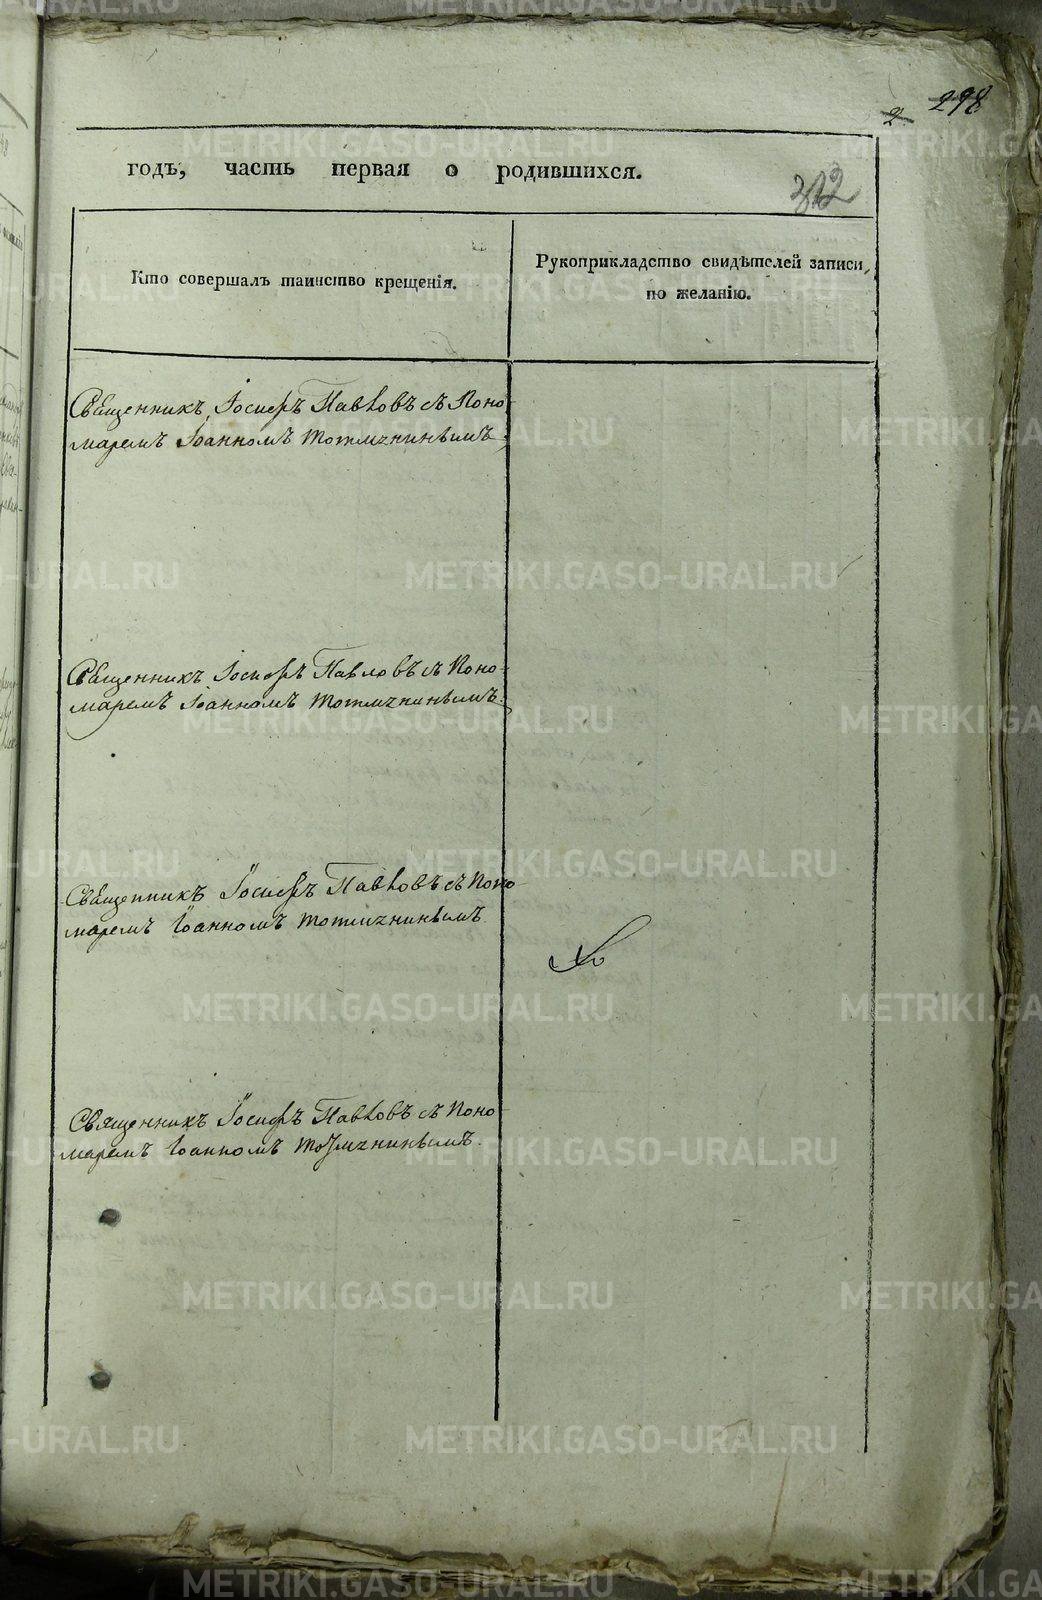 298
2
годъ, часть первая о родившихся.
312
Кто совершалъ таинство крещенія.
Рукоприкладство свидѣтелей записи,
по желанію.
Священникъ Іосифъ Павловъ съ Поно-
маремъ Іоанномъ Тотмянинымъ.
Священникъ Іосифъ Павловъ съ Поно-
маремъ Іоанномъ Тотмянинымъ.
Священникъ Іосифъ Павловъ съ Поно-
маремъ Іоанномъ Тотмянинымъ.
Священникъ Іосифъ Павловъ съ Поно-
маремъ Іоанномъ Тотмянинымъ.
METRIKI.GASO-URAL.RU